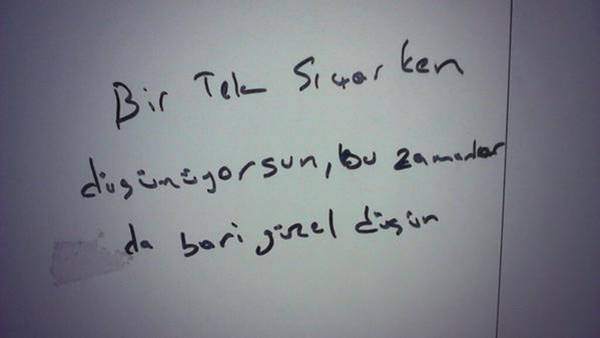 Bir Tek Sıçarken
düşünüyorsun, bu zamanlar
da bari güzel düşün